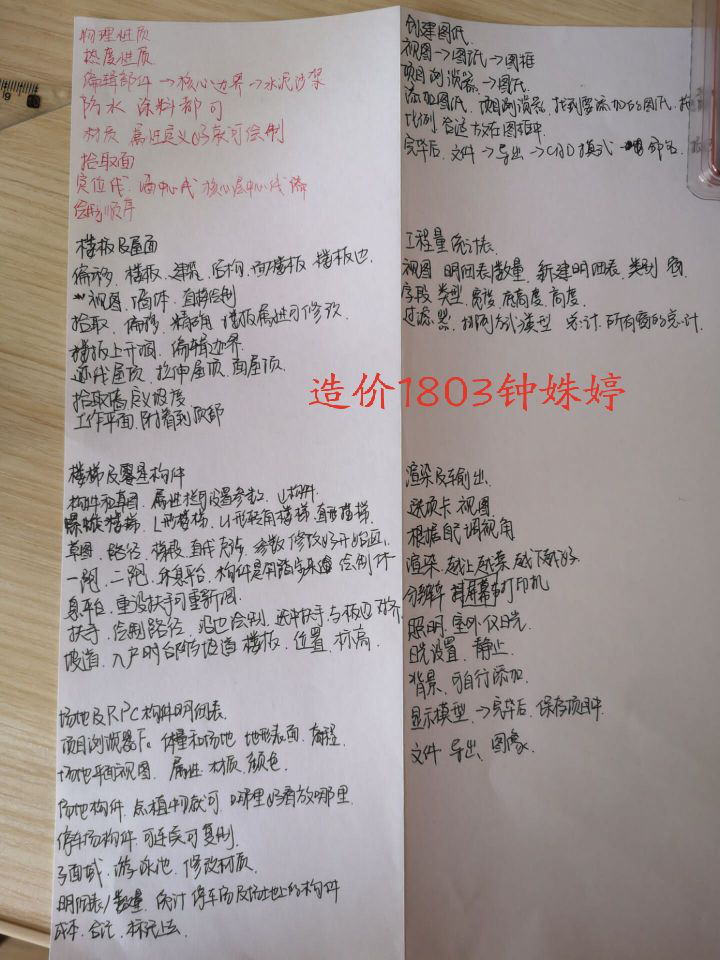 物理性质
热度性质
编辑部件→核心边界→水泥沙架
防水 涂料都可
材质 属性定义好就可绘制
拾取面
定位线、墙中心线 核心层中心线
绘制顺序
楼板及屋面
偏移、楼板、建筑、结构、面楼板 楼板边
视图、墙体、直接绘制
拾取、偏移、精确 楼板属性可修改
楼板上开洞、编辑边界
迹线屋顶、拉伸屋顶、面屋顶、
拾取墙 定义坡度
工作平面、附着到顶部
楼梯及零星构件
构件和草图、属性栏可设置参数、
楼梯、L形楼梯、U形转角楼梯 直形楼梯
草图、路径、梯段、直线
一跑、二跑、休息平台、构件是 绘制休
息平台、重设扶手可重新
扶手、绘制路径、 选中扶手与板边对齐
坡道、入户 台阶与坡道 楼板、位置、标高、
场地及RPC构件明细表
项目浏览器下、体量和场地 地形表面、高程、
场地平面视图、属性 材质、颜色、
场地构件、点植物就可、哪里好看放哪里
停车场构件、可连续可复制
子面域、游泳池、修改材质、
明细表/数量、统计 停车场及场地上的构件
成本、合计、标记上去、
创建图纸
视图→图纸→图框
项目浏览器→图纸、
添加图纸、项目浏览器、找到要添加的图纸、按
比例 合适放在图框中、
完毕后、文件→导出→CAD模式 命名、
工程量统计表
视图 明细表/数量、新建明细表、类别 窗、
字段 类型、宽度 底高度、高度、
过滤器、排列方式类型 总计、所有窗的总计、
造价1803钟姝婷
渲染及输出
选项卡 视图
根据自己调视角
渲染、越上越菜 越下越好
分辨率 屏幕 打印机
照明、室外 仅日光
日光设置、静止、
背景、可自行添加、
显示模型、→完毕后、保存项目中
文件 导出、图像、